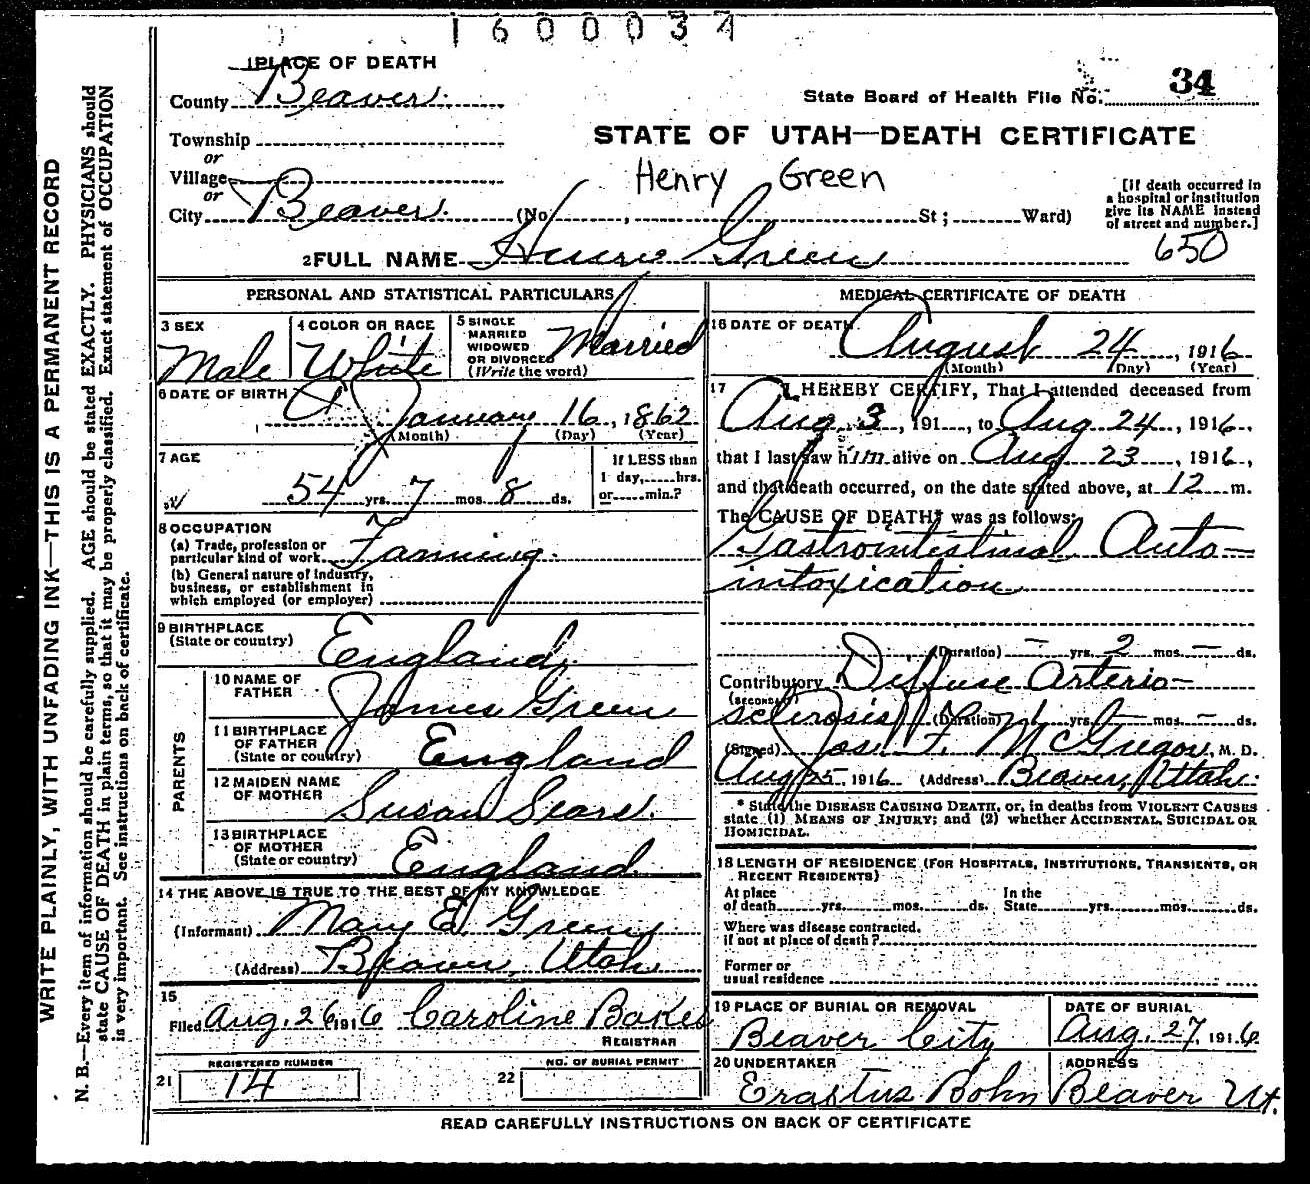 1600034
1 PLACE OF DEATH
County Beaver.
State Board of Health File No. 34
Township
or
STATE OF UTAH—DEATH CERTIFICATE
Village
Henry Green
or
City Beaver. (No. , St ; Ward)
[If death occurred in
a hospital or institution
give its NAME instead
of street and number.]
650
2 FULL NAME Henry Green
PERSONAL AND STATISTICAL PARTICULARS
3 SEX
Male
4 COLOR OR RACE
White
5 SINGLE
MARRIED
WIDOWED
OR DIVORCED
(Write the word)
Married
6 DATE OF BIRTH
January 16, 1862
(Month) (Day) (Year)
7 AGE
54 yrs. 7 mos. 8 ds.
If LESS than
1 day,.....hrs.
or.....min.?
8 OCCUPATION
(a) Trade, profession or
particular kind of work Farming.
(b) General nature of industry,
business, or establishment in
which employed (or employer)
9 BIRTHPLACE
(State or country)
England.
PARENTS
10 NAME OF
FATHER
James Green
11 BIRTHPLACE
OF FATHER
(State or country)
England
12 MAIDEN NAME
OF MOTHER
Susan Sears.
13 BIRTHPLACE
OF MOTHER
(State or country)
England.
14 THE ABOVE IS TRUE TO THE BEST OF MY KNOWLEDGE
(Informant) Mary E. Green
(Address) Beaver, Utah
15
Filed Aug. 26, 1916 Caroline Bakes
REGISTRAR
REGISTERED NUMBER
21 14
NO. OF BURIAL PERMIT
22
MEDICAL CERTIFICATE OF DEATH
16 DATE OF DEATH
August 24, 1916
(Month) (Day) (Year)
17 I HEREBY CERTIFY, That I attended deceased from
Aug 3, 191 , to Aug 24, 1916,
that I last saw him alive on Aug 23, 1916,
and that death occurred, on the date stated above, at 12 m.
The CAUSE OF DEATH* was as follows:
Gastrointestinal Auto-
intoxication
(Duration) – yrs. 2 mos. – ds.
Contributory Diffuse Arterio-
(SECONDARY)
sclerosis (Duration) 1 yrs. – mos. – ds.
(Signed) Jos. F. McGregor, M. D.
Aug 25, 1916 (Address) Beaver, Utah.
* State the DISEASE CAUSING DEATH, or, in deaths from VIOLENT CAUSES
state (1) MEANS OF INJURY; and (2) whether ACCIDENTAL, SUICIDAL OR
HOMICIDAL.
18 LENGTH OF RESIDENCE (FOR HOSPITALS, INSTITUTIONS, TRANSIENTS, OR
RECENT RESIDENTS)
At place
of death.......yrs.......mos.......ds.
In the
State.......yrs.......mos.......ds.
Where was disease contracted,
if not at place of death?
Former or
usual residence
19 PLACE OF BURIAL OR REMOVAL
Beaver City
DATE OF BURIAL
Aug. 27, 1916.
20 UNDERTAKER
Erastus Bohn
ADDRESS
Beaver Ut.
READ CAREFULLY INSTRUCTIONS ON BACK OF CERTIFICATE
WRITE PLAINLY, WITH UNFADING INK—THIS IS A PERMANENT RECORD
N. B.—Every item of information should be carefully supplied. AGE should be stated EXACTLY. PHYSICIANS should
state CAUSE OF DEATH in plain terms, so that it may be properly classified. Exact statement of OCCUPATION
is very important. See instructions on back of certificate.